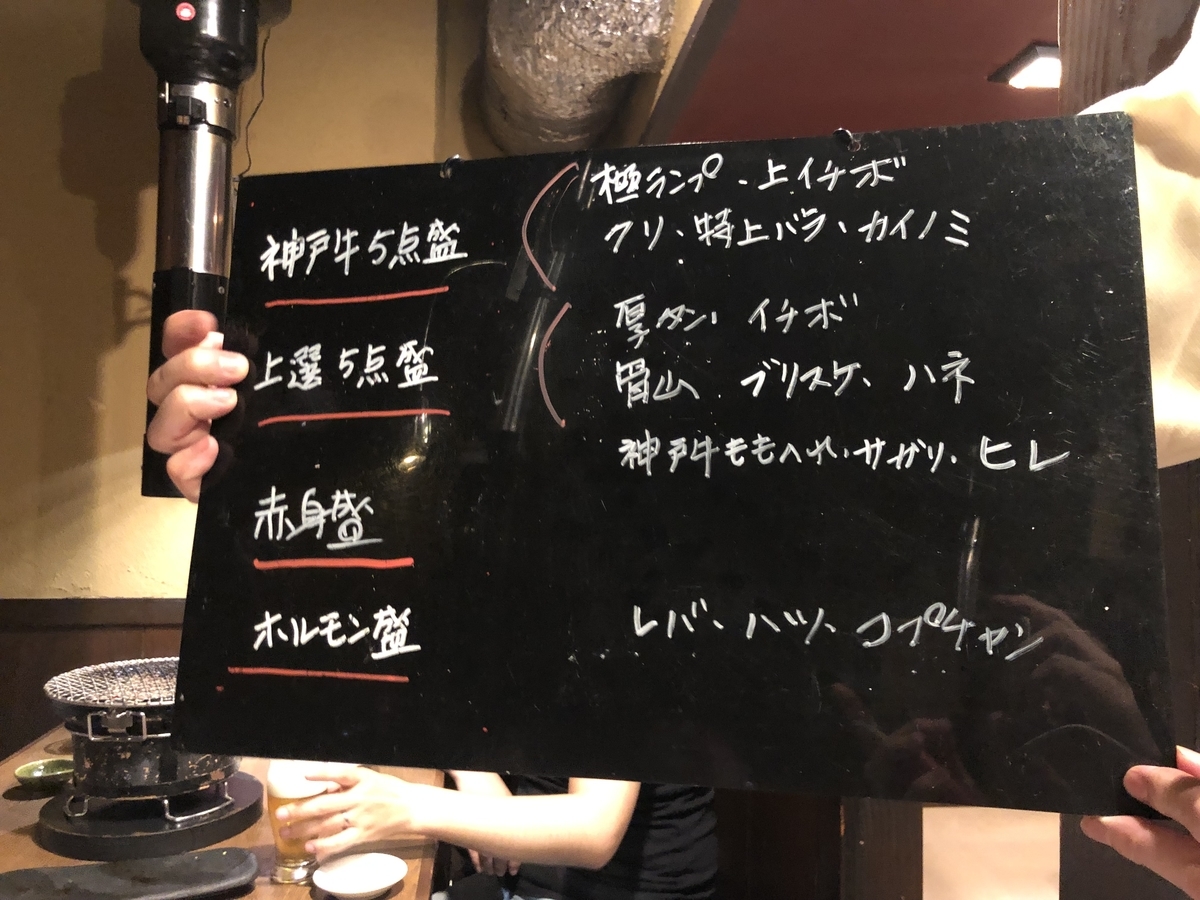 神戸牛5点盛
極ランプ、上イチボ
クリ、特上バラ、カイノミ
上選5点盛
厚タン、イチボ
肩山 ブリスケ、ハネ
赤身盛
神戸牛ももヘレ、サガリ、ヒレ
ホルモン盛
レバー、ハツ、コプチャン